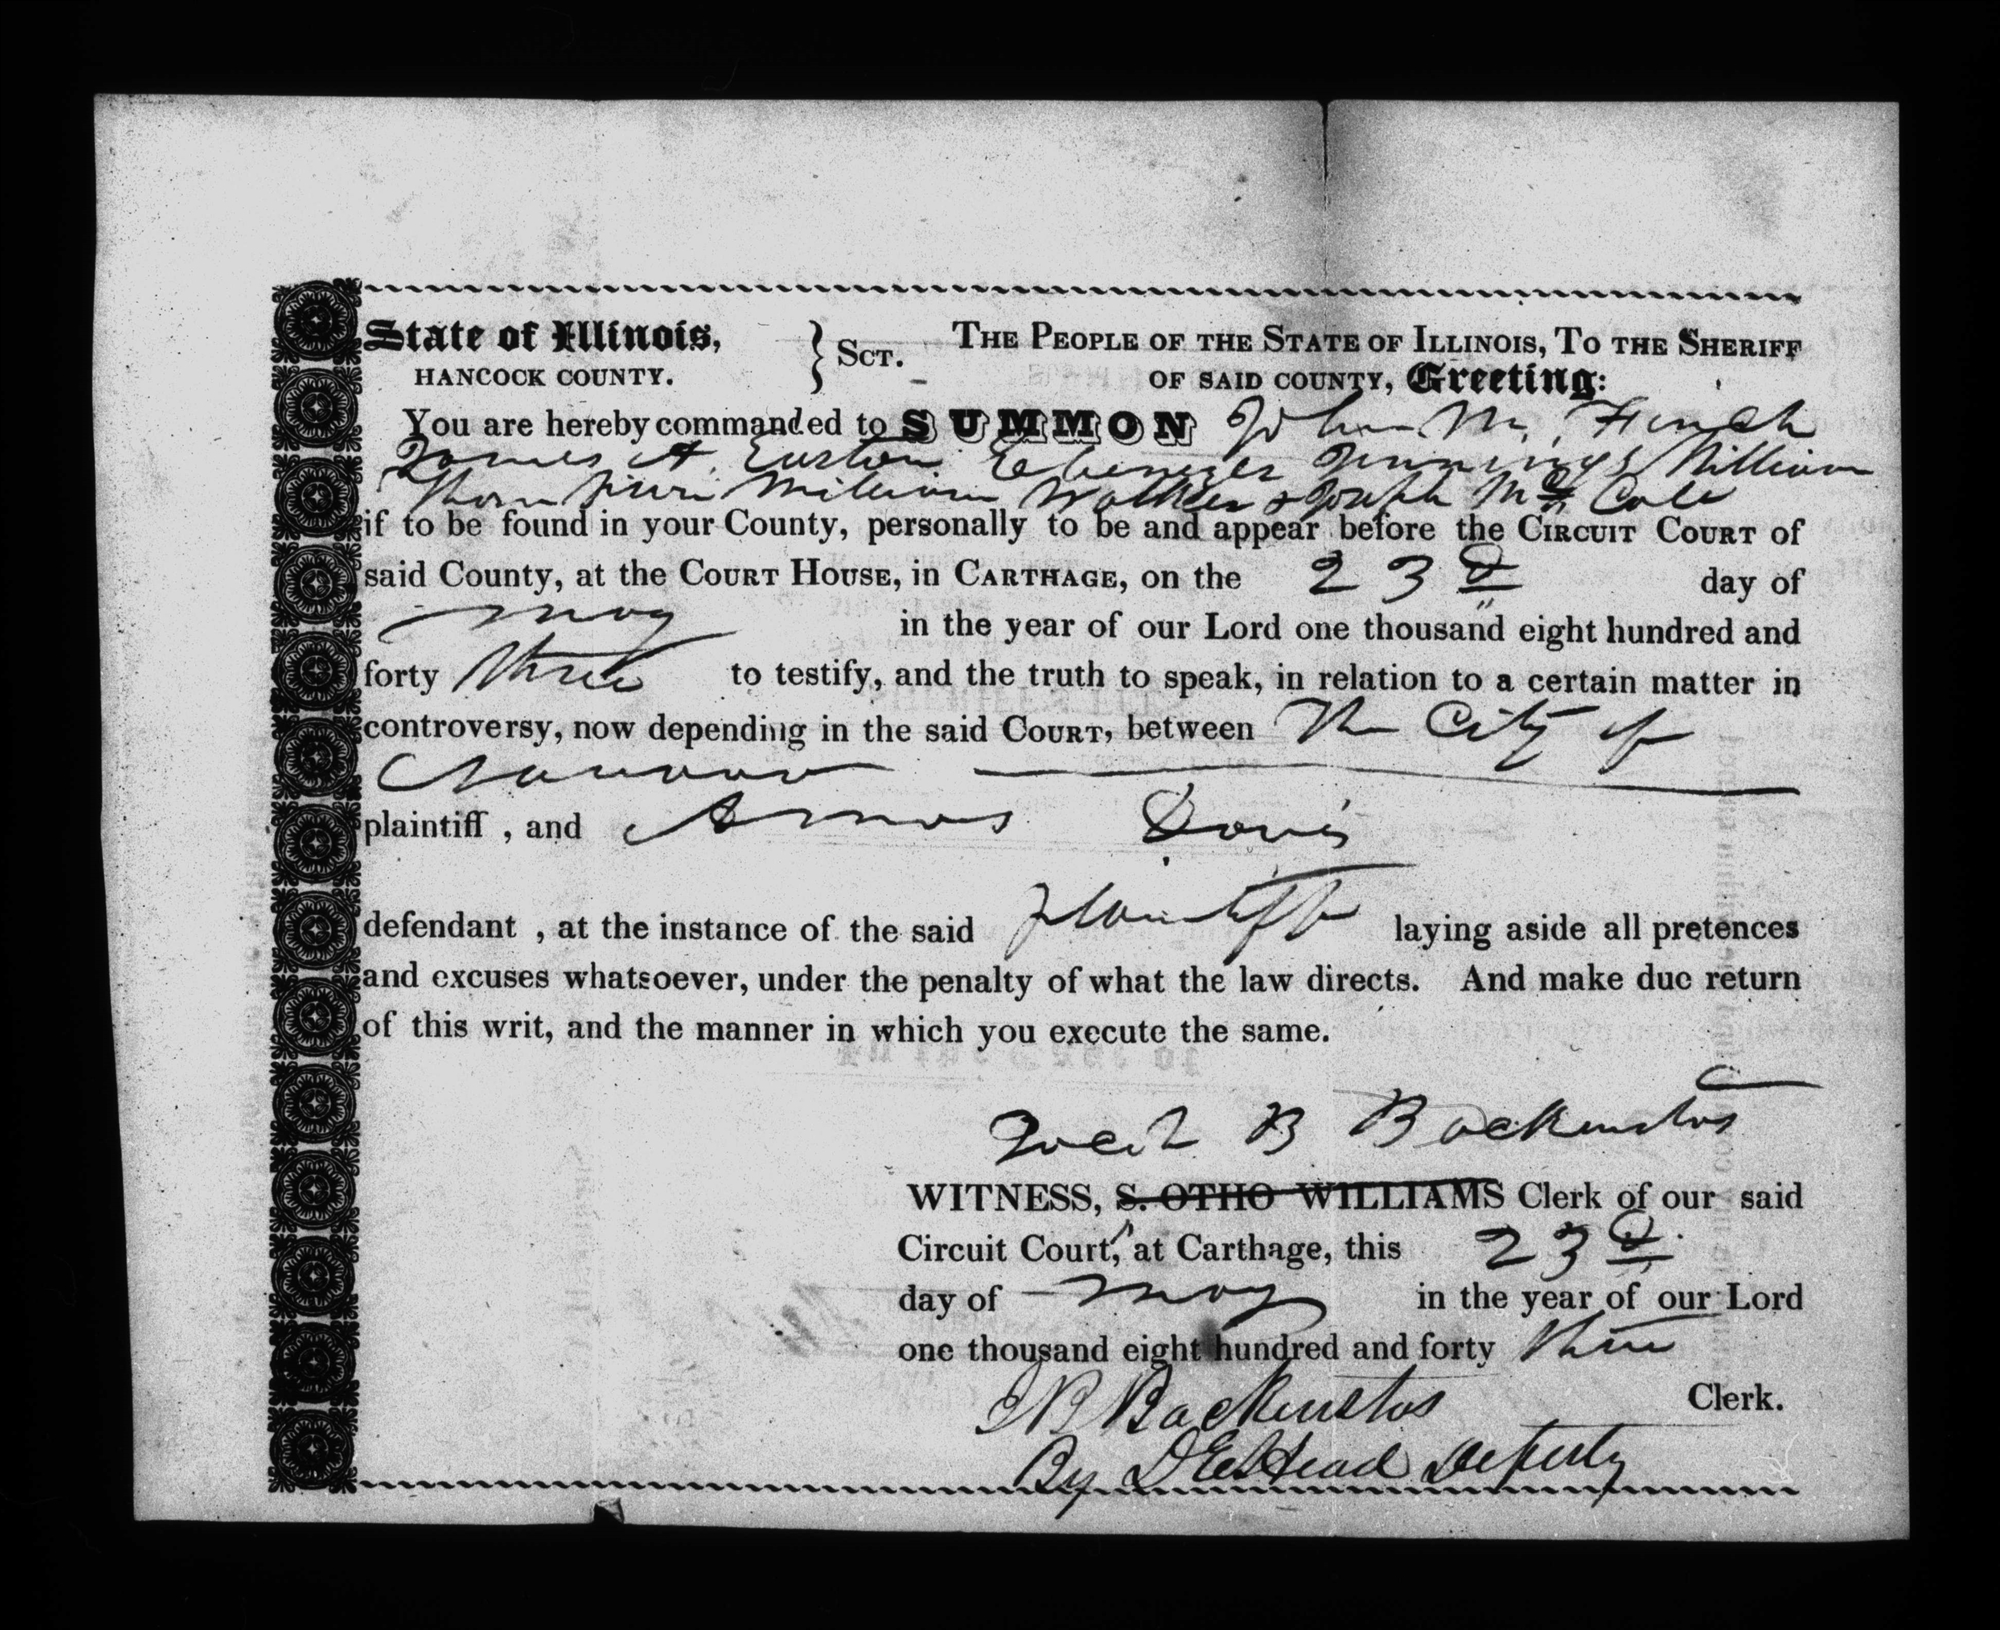 State of Illinois, } Sct. The People of the State of Illinois, To the Sheriff
HANCOCK COUNTY. of said county, Greeting:
You are hereby commanded to SUMMON John M. Finch
James A. Easton Ebenezer Jennings William
Thompson William Walker & Joseph Mc Cole
if to be found in your County, personally to be and appear before the Circuit Court of
said County, at the Court House, in Carthage, on the 23d day of
May in the year of our Lord one thousand eight hundred and
forty three to testify, and the truth to speak, in relation to a certain matter in
controversy, now depending in the said Court, between The City of
Nauvoo
plaintiff , and Amos Davis
defendant , at the instance of the said plaintiff laying aside all pretences
and excuses whatsoever, under the penalty of what the law directs. And make due return
of this writ, and the manner in which you execute the same.
Jacob B Backenstos
WITNESS, S. OTHO WILLIAMS Clerk of our said
Circuit Court, at Carthage, this 23d
day of May in the year of our Lord
one thousand eight hundred and forty three
J B Backenstos Clerk.
By D E Head Deputy